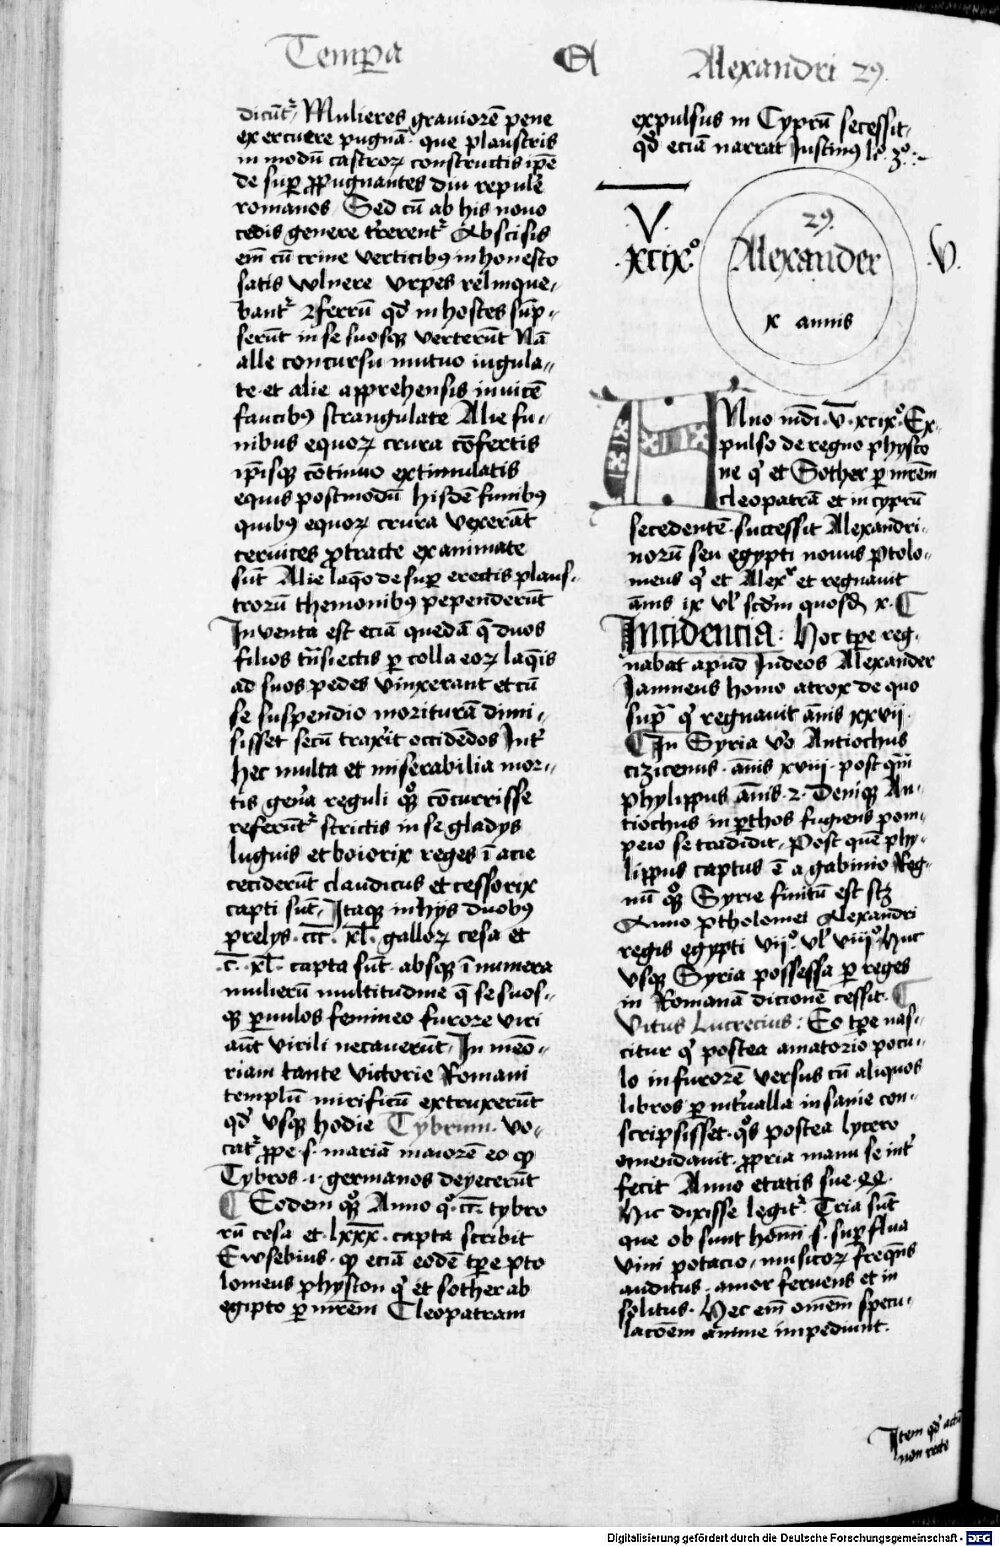 Temp̱a Et Alexandri 29.
dicūtʳ Mulieres grauiorē pene
exercuere pugnā. que plaustris
in modū castroꝝ constructis ip̄e
de suꝑ ꝓpugnantes diu repulēr
romanos. Sed cū ab his nouo
cedis genere trerentʳ Abscisis
em̄ cū crine verticibꝰ inhonesto
satis vulnere vrpes relinque-
bantʳ ⁊ ferrū qd̕ in hostes sūp-
serūt in se suosqꝫ verterūt Nā
alle concursu mutuo iugula-
te. et alie apprehensis inuicē
faucibꝰ strangulate Alie fu-
nibus equoꝝ crura cōfertis
ip̄isqꝫ cōtinuo extimulatis
equis postmodū hisdē funibꝰ
quibꝰ equoꝝ crura vexerāt
ceruices ꝓtracte exanimate
sūt Alie laq̄o de suꝑ erectis plaus-
trorū themonibꝰ pependerūt
Inuenta est eciā quedā q̄ duos
filios tn̄siectis ꝑ colla eoꝝ laq̄is
ad suos pedes vinxerant et cū
se suspendio moriturā dimi-
sisset secū traxit occidēdos Int̕
hec multa et miserabilia mor-
tis gen̄a reguli qꝫ cōcurrisse
referūtʳ strictis in se gladys
luguis et boiorix reges ī acie
ceciderūt claudicus et cessorix
capti sūt. Itaqꝫ in hys duobꝰ
prelys .ccc. xl. galloꝝ cesa et
.c. xl. capta sūt. absqꝫ īnumera
mulierū multitudine q̄ se suos-
qꝫ ꝑuulos femineo furore viri
aūt virili necauerūt. In meō-
riam tante victorie Romani
templū mirificū extruxerūt
qd̕ vsqꝫ hodie Tybrium. vo-
catʳ ꝓpe .s. mariā maiorē eo ꝙ
Tybros .i. germanos deyecerūt
¶ Eodem qꝫ Anno q̊. cc. tybro
rū cesa et. lxxx. capta scribit
Ewsebius. ꝙ eciā eodē tꝑe pto
lomeus physcon q̕ et sother ab
egipto ꝑ mr̄em Cleopatram
expulsus in Cyprū secessit.
qd̕ eciā narrat Justinꝰ li̊. 3̊.
.V.
.xcix.̊
29.
Alexander
x annis
.V.
ANno mdi. v̄. xcix.̊ Ex-
pulso de regno physco
ne q̕ et Sother ꝑ mr̄em
cleopatrā et in cyprū
secedentē. successit Alexandri-
norū seu egypti nouus Ptolo-
meus q̕ et Alexʳ et regnauit
ānis ix vl̕ scd̄m quosd̄ x. ¶
Incidencia: Hoc tꝑe reg-
nabat apud Judeos Alexander
Jamneus homo atrox de quo
supᵃ q̕ regnauit ānis xxvii.
¶ In Syria v̊o Antiochus
cizicenus. ānis xviii. post quē
phylippus ānis .2. Deniqꝫ An-
tiochus in ꝑthos fugiens pom-
peio se tradidit. Post quē phy-
lippus captus ē a gabinio Reg-
nū qꝫ Syrie finitū est scꝫ
Anno ptholomei Alexandri
regis egypti vii̊. vl̕ viii̊. Huc
vsqꝫ Syria possessa ꝑ reges
in Romanā dicionē cessit. ¶
Vitus Lucrecius: Eo tꝑe nas-
citur q̕ postea amatorio pocu-
lo in furorē versus cū aliquos
libros ꝑ int̕ualla insanie con-
scripsisset. q̊s postea lycero
emendauit. ꝓpria manu se int̕
fecit Anno etatis sue .44.
Hic dixisse legitʳ. Tria sūt
que ob sunt homī .s. suꝑflua
vini potacio. musicoꝝ freqn̄s
auditus. amor feruens et in
solitus. Hec em̄ omēm specu-
lacōem anime impediunt.
Item qd̕
non recte